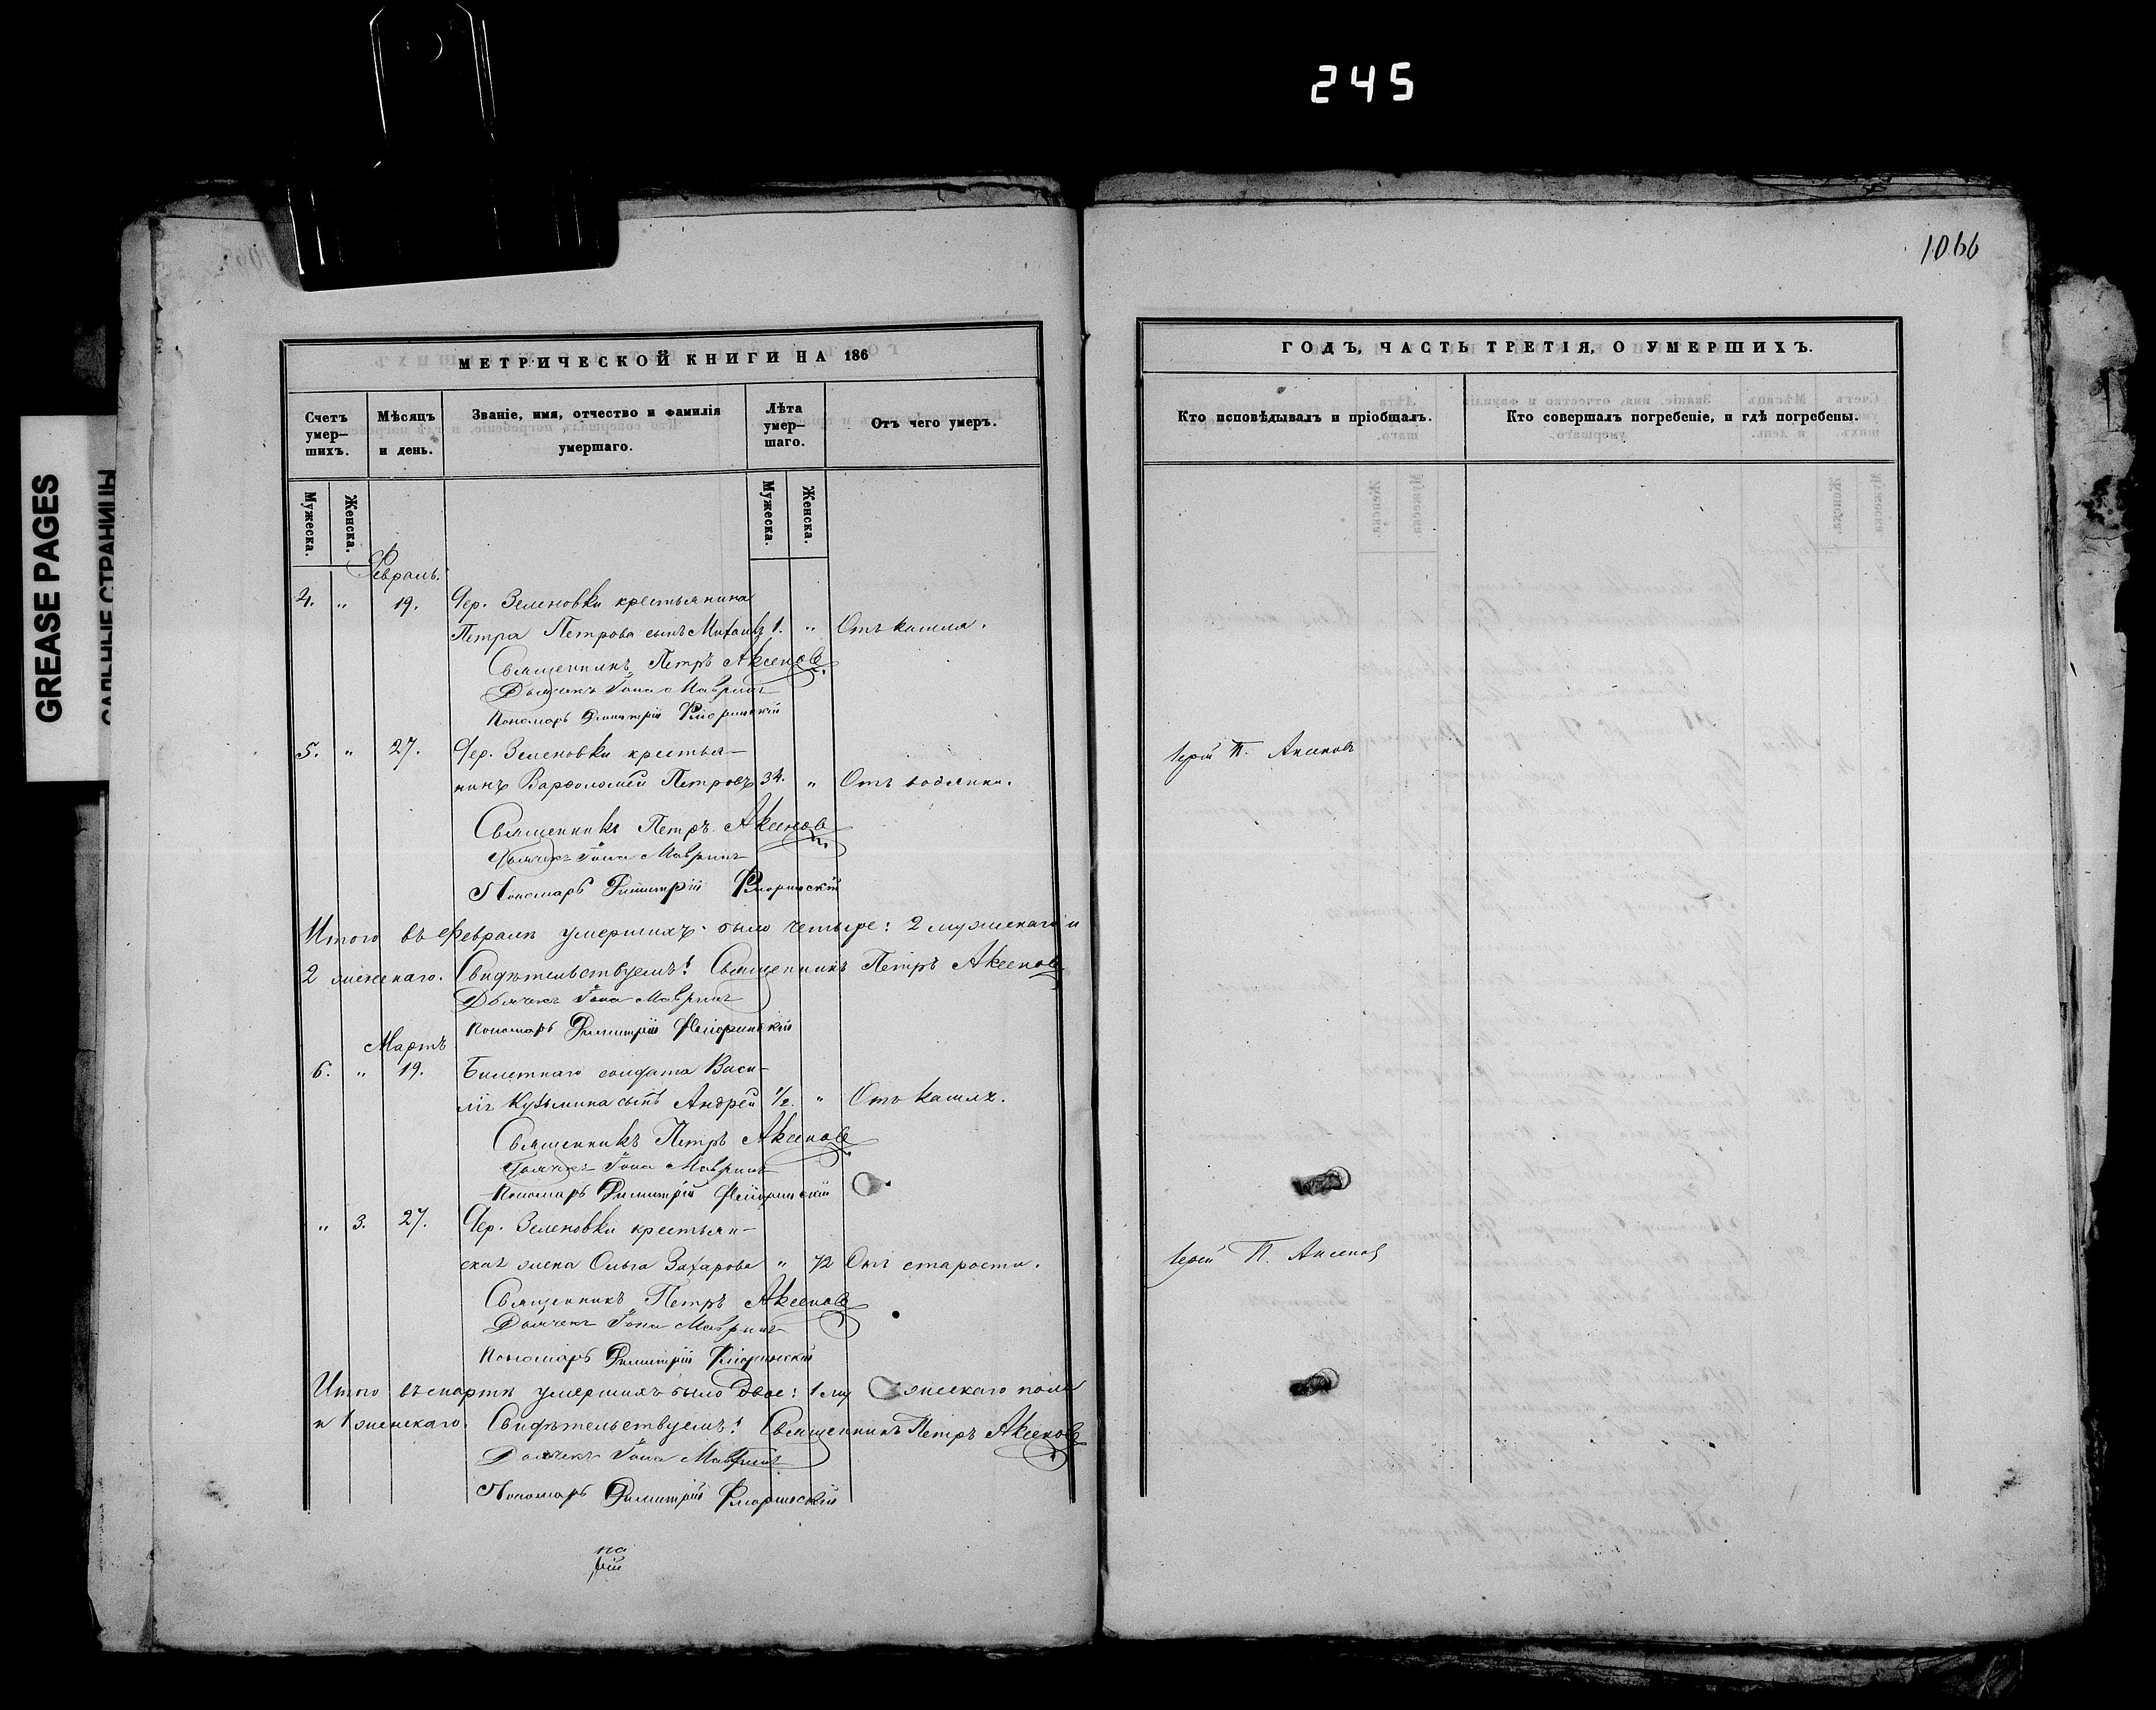 245
GREASE PAGES
САЛЬНЫЕ СТРАНИЦЫ
1066
МЕТРИЧЕСКОЙ КНИГИ НА 186
Счетъ умер–шихъ.
Мѣсяцъ и день.
Званіе, имя, отчество и фамилія умершаго.
Лѣта умер–шаго.
Отъ чего умеръ.
Мужеска.
Женска.
Мужеска.
Женска.
Февраль.
4. „ 19. Дер. Зеленовки крестьянина
Петра Петрова сынъ Михаилъ 1. „ Отъ кашля.
Священникъ Петръ Аксеновъ
Дьячекъ Іона Мавринъ
Пономарь Димитрій Флоринскій
5. „ 27. Дер. Зеленовки крестья–
нинъ Варѳоломей Петровъ 34. „ Отъ водянки.
Священникъ Петръ Аксеновъ
Дьячекъ Іона Мавринъ
Пономарь Димитрій Флоринскій
Итого въ Февралѣ умершихъ было четыре: 2 мужескаго и
2 женскаго. Свидѣтельствуемъ! Священникъ Петръ Аксеновъ
Дьячекъ Іона Мавринъ
Пономарь Димитрій Флоринскій
Мартъ
6. „ 19. Билетнаго солдата Васи–
лія Кузьмина сынъ Андрей 1/2. „ Отъ кашля.
Священникъ Петръ Аксеновъ
Дьячекъ Іона Мавринъ
Пономарь Димитрій Флоринскій
„ 3. 27. Дер. Зеленовки крестьян–
ская жена Ольга Захарова „ 72 Отъ старости.
Священникъ Петръ Аксеновъ
Дьячекъ Іона Мавринъ
Пономарь Димитрій Флоринскій
Итого въ мартѣ умершихъ было двое: 1 му жескаго пола
и 1 женскаго. Свидѣтельствуемъ! Священникъ Петръ Аксеновъ
Дьячекъ Іона Мавринъ
Пономарь Димитрій Флоринскій
ГОДЪ, ЧАСТЬ ТРЕТІЯ, О УМЕРШИХЪ.
Кто исповѣдывалъ и пріобщалъ.
Кто совершалъ погребеніе, и гдѣ погребены.
Іерей П. Аксеновъ
Іерей П. Аксеновъ